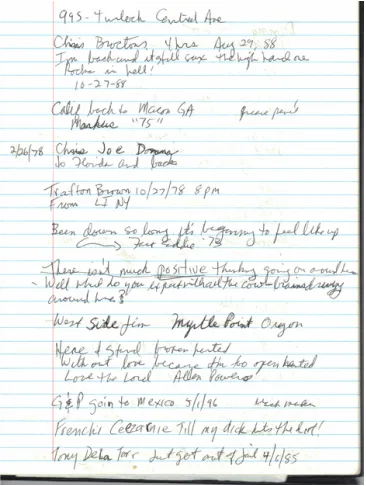 995 - Turlock Central Ave
Chris 4 hrs Aug 29, 88
I'm back and still the high hard one
in hell!
10-27-88
Calif back to Macon GA
Markus "75"
2/26/78 Chris Joe Donna
to Florida and back
Trafton Brown 10/27/78 8 PM
From LI NY
Been down so long it's beginning to feel like up
Fast Eddie '78
There isn't much positive thinking going on around here
- Well what do you expect with all the cow brained
around here?
West Side Jim Myrtle Point Oregon
Here I stand broken hearted
Without love because I'm so open hearted
Love the Lord Allen Powers
G & P goin to Mexico 5/1/96
Frenchi Till my dick hits the dirt!
Tony De La Torr Just got out of Jail 4/1/85